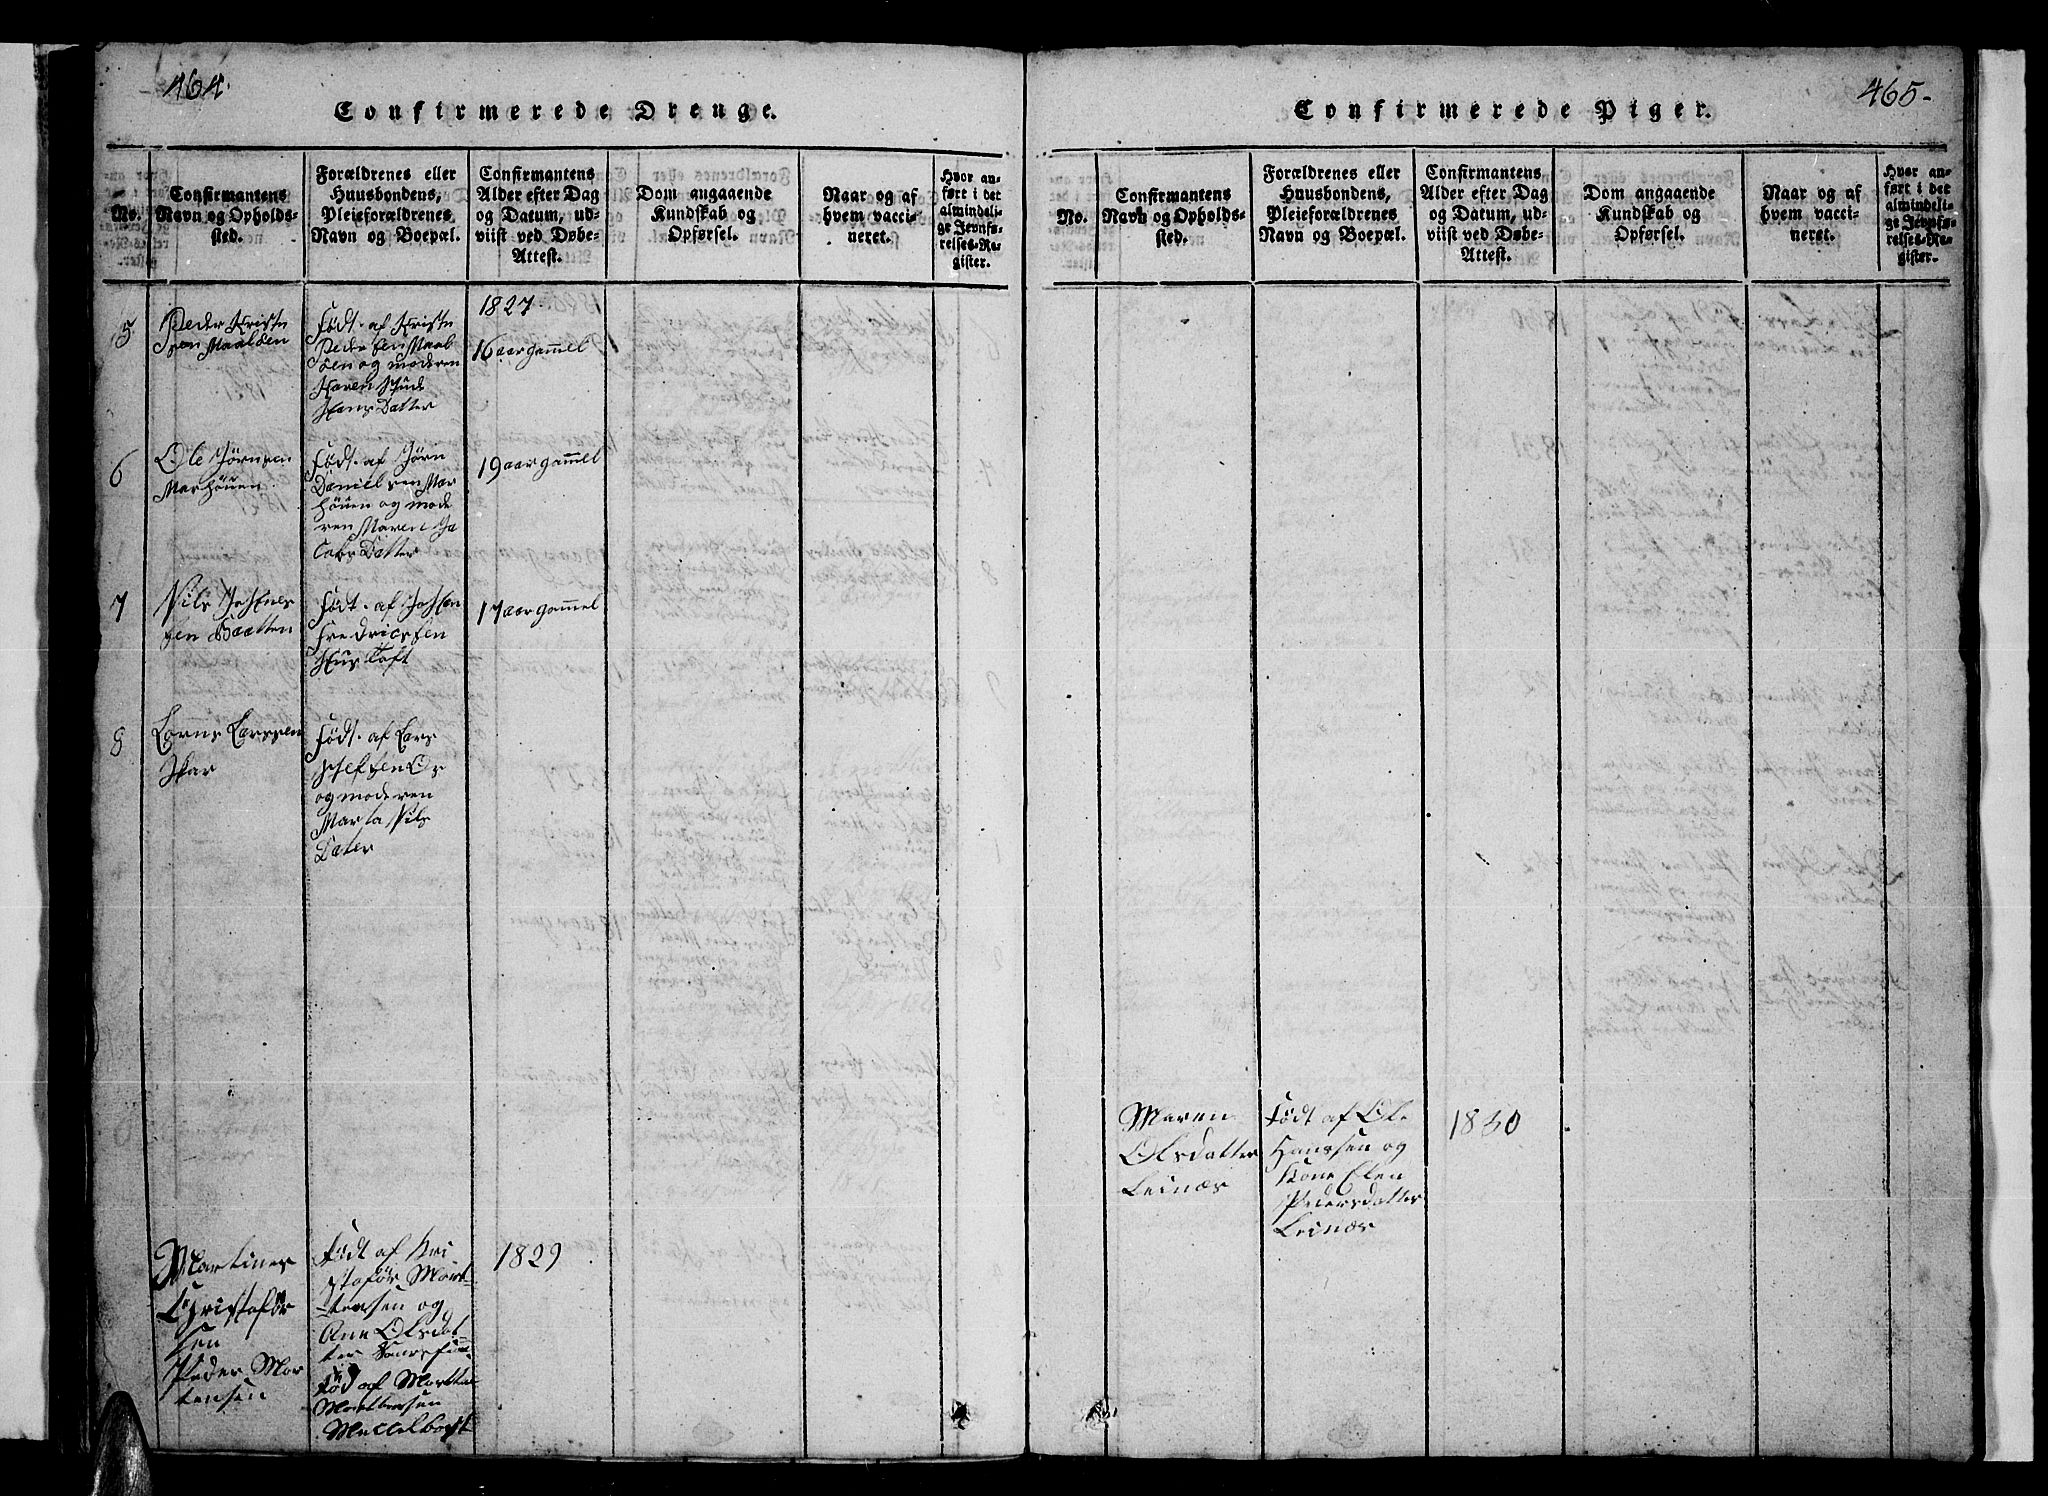 464.
Confirmerede Drenge.
No.
Confirmantens
Navn og Opholds-
sted.
Forældrenes eller
Huusbondens,
Pleieforældrenes
Navn og Boepæl.
Confirmantens
Alder efter Dag
og Datum, ud-
viist ved Døbe-
Attest.
Dom angaaende
Kundskab og
Opførsel.
Naar og af
hvem vacci-
neret.
Hvor an-
ført i det
almindeli-
ge Jevnfø-
relses-Re-
gister.
1827.
5
Peder Kriste
Født af Kriste
Peder sen Maab
16 aar gammel
sen og moderen
Karen
Hans Datter
6
Ole Jørnsen
Marhöuen
Født af Jørn
Daniel sen Mar
höuen og mode
ren Maren Ja
Cobs Datter
19 aar gammel
7
Nils Johnes
sen Baatten
Født af Johan
Fredricsen
Hus Toft
17 aar gammel
8
Larssen
Født af Lars
og moderen
Marta Nils
Dater
Martines
Christofør
sen
Født af Kri
stofør Mort
tensen og
Ane Olsdat
ter
1829
Peder Mor
tensen
Fød af Morten
Mellelborst
465-
Confirmerede Piger.
No.
Confirmantens
Navn og Opholds-
sted.
Forældrenes eller
Huusbondens,
Pleieforældrenes
Navn og Boepæl.
Confirmantens
Alder efter Dag
og Datum, ud-
viist ved Døbe-
Attest.
Dom angaaende
Kundskab og
Opførsel.
Naar og af
hvem vacci-
neret.
Hvor an-
ført i det
almindeli-
ge Jevnfø-
relses-Re-
gister.
Maren
Olsdatter
Leinæs
Født af Ole
Hanssen og
Kone Elen
Pedersdatter
Leinæs
1830